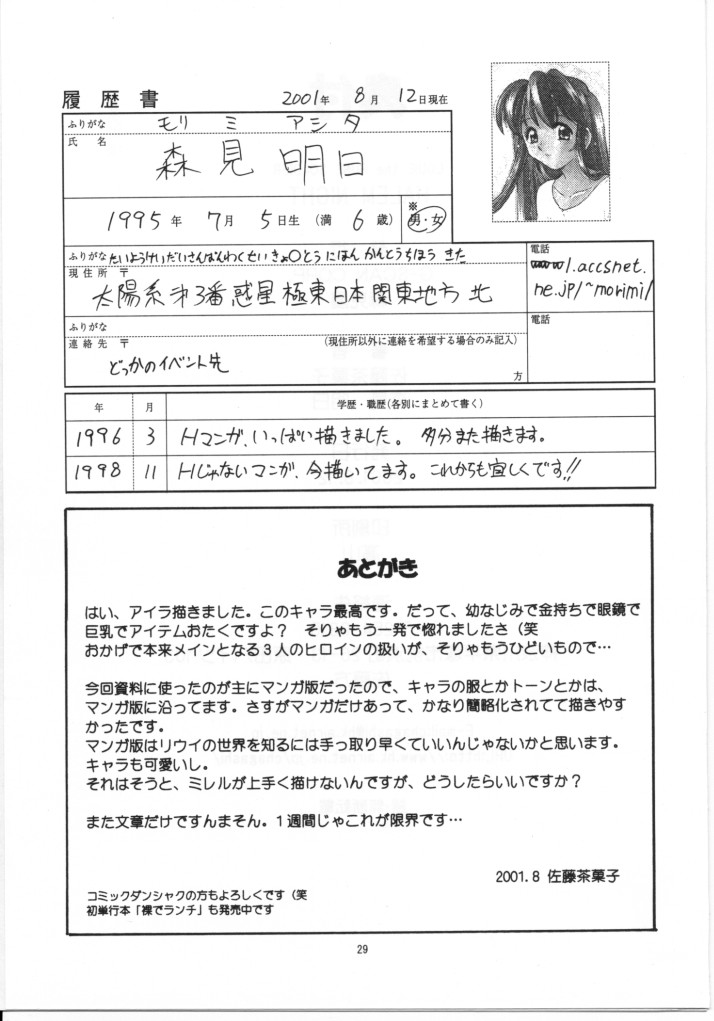 履歴書
2001年 8月 12日現在
ふりがな モリ ミ アシタ
氏 名 森見 明日
1995年 7月 5日生 (満 6歳) ※ 男・女
ふりがな たいようけいだいさんばんわくせいきょ〇とうにほん かんとうちほう きた
現住所 〒
太陽系第3番惑星極東日本関東地方 北
電話
www1.accsnet.
ne.jp/~morimi/
ふりがな
連絡先 〒 (現住所以外に連絡を希望する場合のみ記入)
どっかのイベント先
方
電話
年 月 学歴・職歴(各別にまとめて書く)
1996 3 Hマンガ、いっぱい描きました。 多分また描きます。
1998 11 Hじゃないマンガ、今描いてます。これからも宜しくです!!
あとがき
はい、アイラ描きました。このキャラ最高です。だって、幼なじみで金持ちで眼鏡で
巨乳でアイテムおたくですよ? そりゃもう一発で惚れましたさ(笑
おかげで本来メインとなる3人のヒロインの扱いが、そりゃもうひどいもので…
今回資料に使ったのが主にマンガ版だったので、キャラの服とかトーンとかは、
マンガ版に沿ってます。さすがマンガだけあって、かなり簡略化されてて描きやす
かったです。
マンガ版はリウイの世界を知るには手っ取り早くていいんじゃないかと思います。
キャラも可愛いし。
それはそうと、ミレルが上手く描けないんですが、どうしたらいいですか?
また文章だけですんません。1週間じゃこれが限界です…
2001.8 佐藤茶菓子
コミックダンシャクの方もよろしくです(笑
初単行本「裸でランチ」も発売中です
29